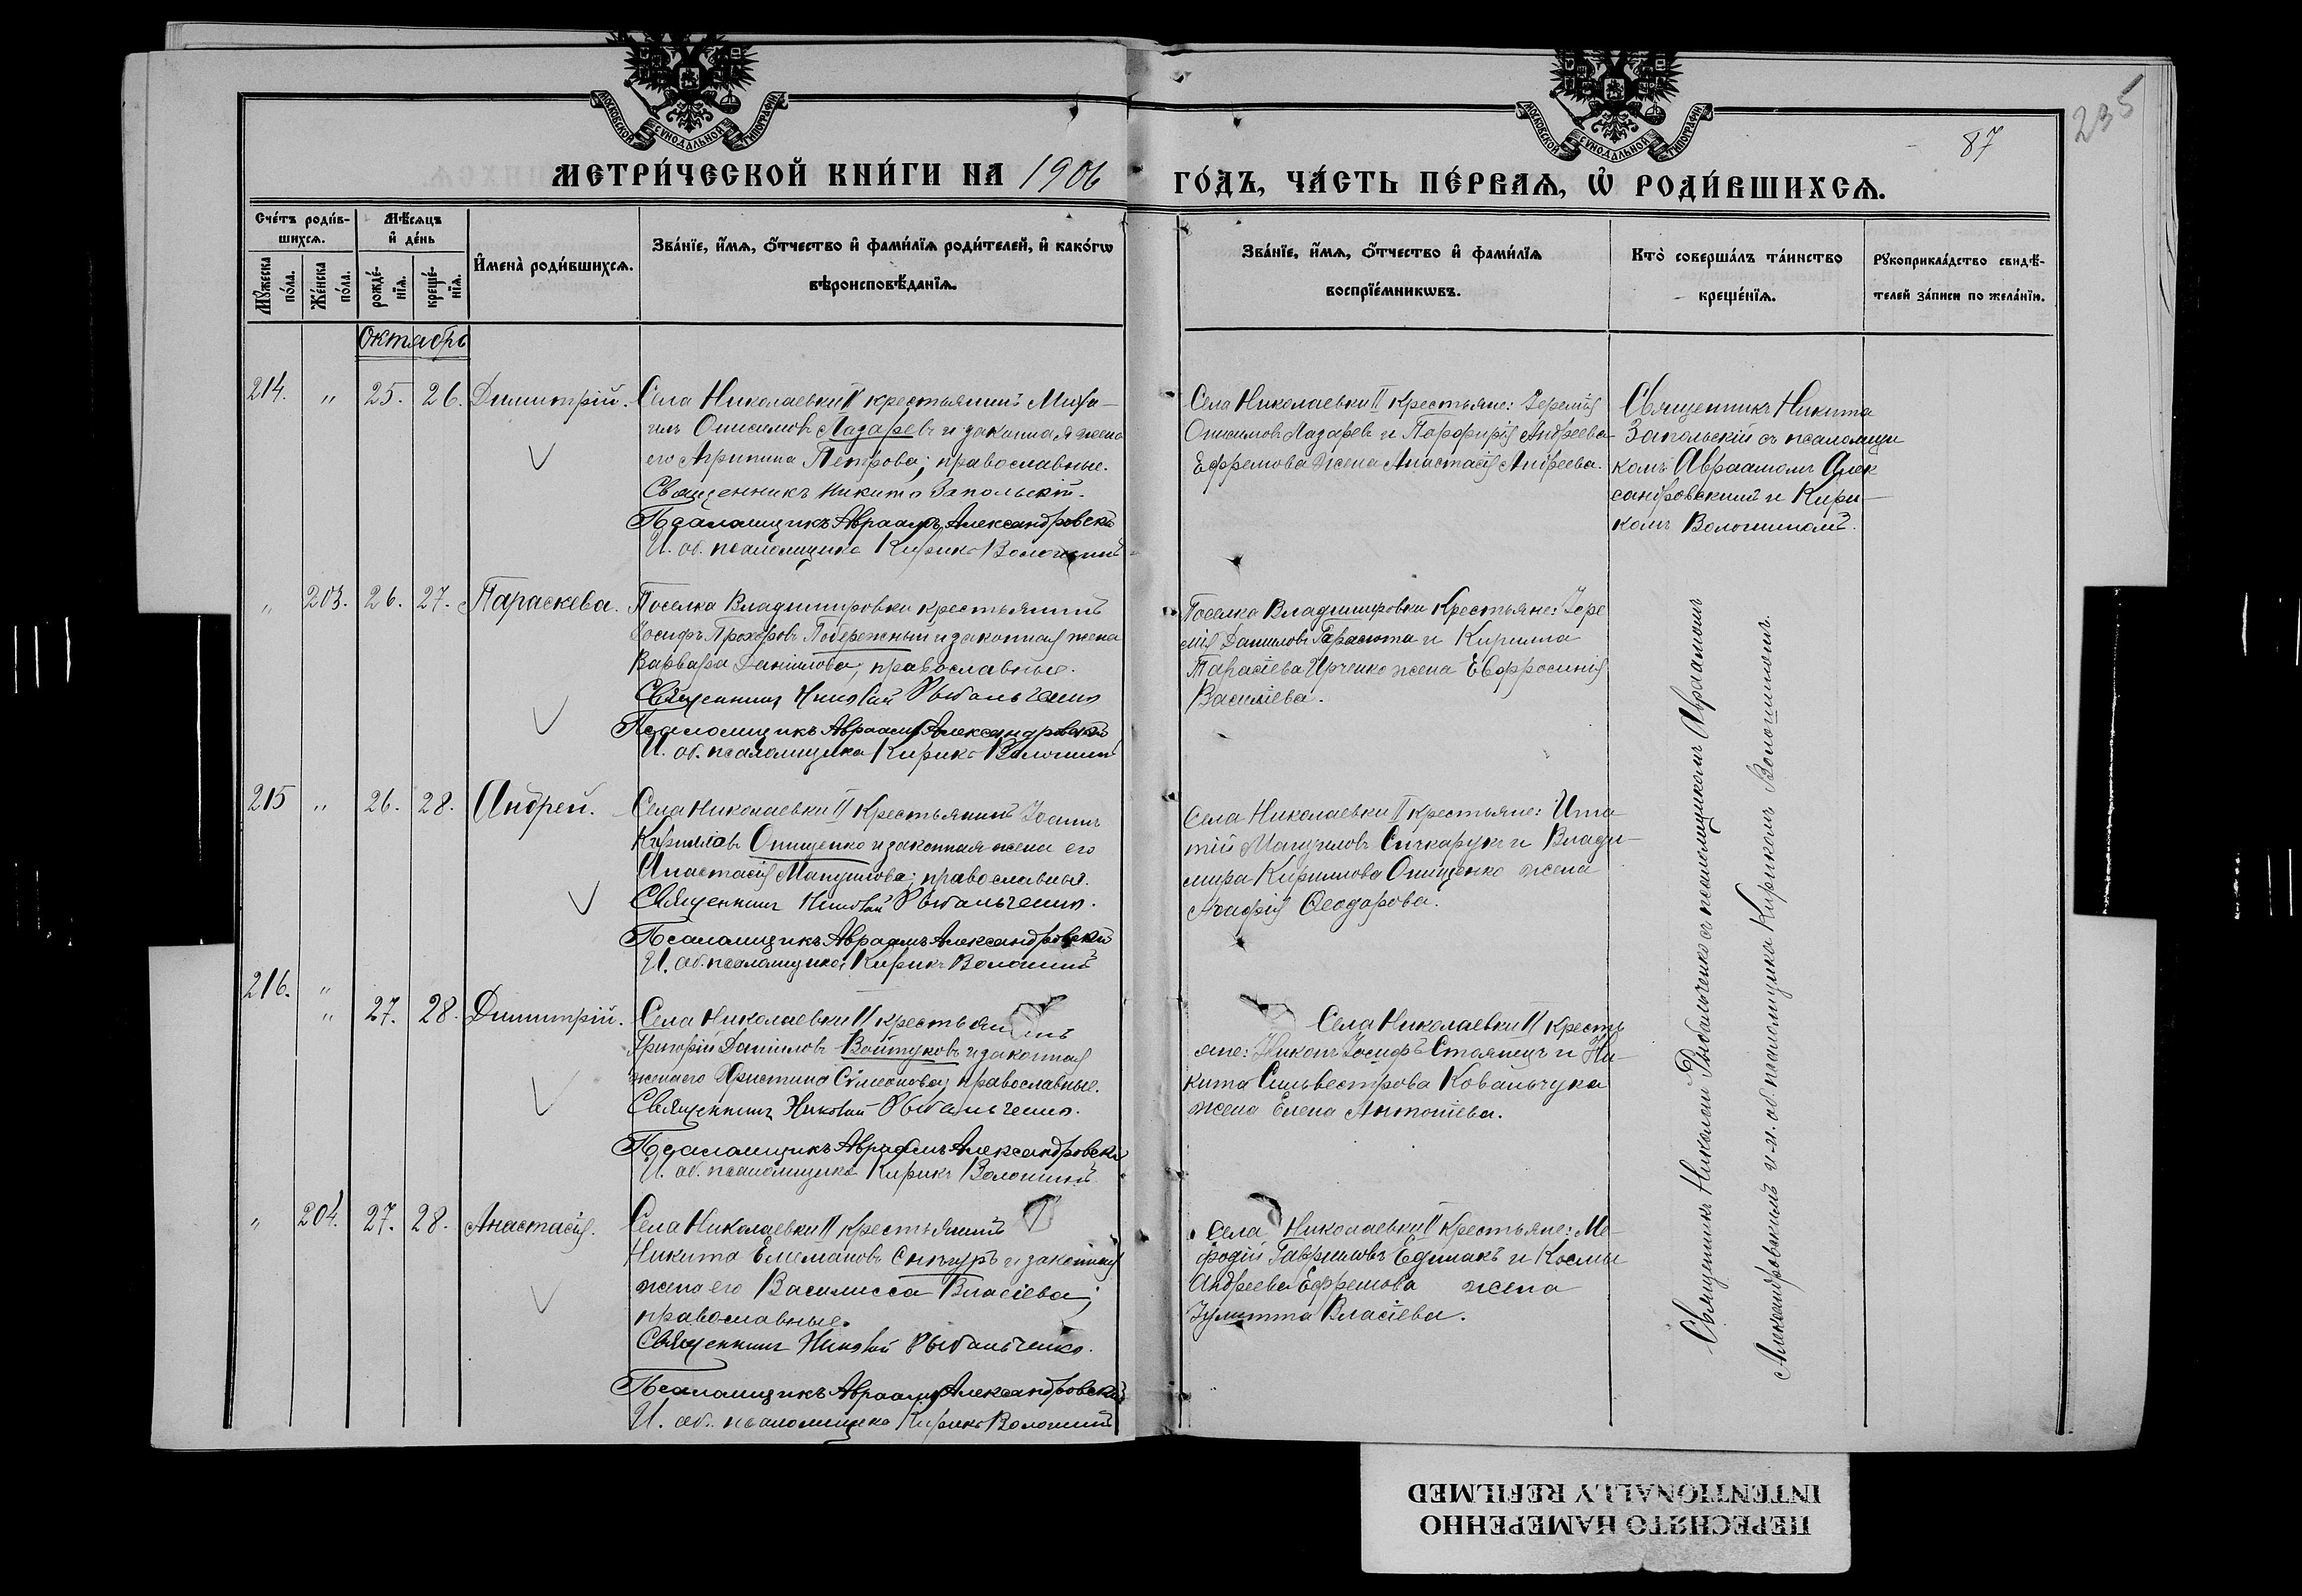 МОСКОВСКОЙ СѴНОДАЛЬНОЙ ТИПОГРАФІИ
МОСКОВСКОЙ СѴНОДАЛЬНОЙ ТИПОГРАФІИ
235
87
МЕТРИ́ЧЕСКОЙ КНИ́ГИ НА 1906
ГО́ДЪ, ЧА́СТЬ ПЕ́РВАѦ, Ѡ҆ РОДИ́ВШИХСѦ.
Сче́тъ роди́в-
шихсѧ.
Мѣ́сѧцъ
и҆ де́нь
Мꙋ́жеска по́ла.
Же́нска по́ла.
рожде́-
нїѧ.
креще́-
нїѧ.
И҆мена̀ роди́вшихсѧ.
Зва́нїе, и҆́мѧ, ѻ҆́тчество и҆ фами́лїѧ роди́телей, и҆ како́гѡ
вѣроисповѣ́данїѧ.
Зва́нїе, и҆́мѧ, ѻ҆́тчество и҆ фами́лїѧ
воспрїе́мникѡвъ.
Кто̀ соверша́лъ та́инство
креще́нїѧ.
Рꙋкоприкла́дство свидѣ́-
телей за́писи по жела́нїю.
Октябрь
214. " 25. 26. Димитрій.
Села Николаевки II крестьянинъ Миха-
илъ Онисимовъ Лазаревъ и законная жена
его Агрипина Петрова; православные.
Священникъ Никита Запольскій.
Псаломщикъ Авраамъ Александровскій
И. об. псаломщика Кирикъ Волошинъ
Села Николаевки II крестьяне: Іеремія
Онисимовъ Лазаревъ и Порфирія Андреева
Ефремова жена Анастасія Андреева.
Священникъ Никита
Запольскій съ псаломщи
комъ Авраамомъ Алек
сандровскимъ и Кири-
комъ Волошиномъ.
" 203. 26. 27. Параскева.
Поселка Владимировки крестьянинъ
Іосифъ Прохоровъ Побережный и законная жена
Варвара Даніилова; православные.
Священникъ Николай Рыбальченко
Псаломщикъ Авраамъ Александровскій
И. об. псаломщика Кирикъ Волошинъ
Поселка Владимировки Крестьяне: Іере
мія Даниловъ и Кирилла
Тарасіева жена Евфросинія
Василіева.
215 " 26. 28. Андрей.
Села Николаевки II Крестьянинъ Іоаннъ
Кирилловъ Онищенко и законная жена его
Анастасія Мануилова; православные.
Священникъ Николай Рыбальченко.
Псаломщикъ Авраамъ Александровскій
И. об. псаломщика Кирикъ Волошинъ
Села Николаевки II крестьяне: Игна
тій Мануиловъ Сичкарукъ и Влади-
мира Кириллова Онищенко жена
Агафія Ѳеодорова.
216. "
" 27. 28. Димитрій.
Села Николаевки II крестьянинъ
Григорій Даниловъ Войтуковъ и законная
жена его Христина Симеонова; православные.
Священникъ Николай Рыбальченко.
Псаломщикъ Авраамъ Александровскій
И. об. псаломщика Кирикъ Волошинъ
Села Николаевки II кресть
яне: Никонъ Іосифъ Стоянецъ и Ни-
кита Сильвестрова Ковальчука
жена Елена Антоніева.
" 204. 27. 28. Анастасія.
Села Николаевки II крестьянинъ
Никита Снѣгуръ и законная
жена его Василисса Власіева;
православные.
Священникъ Николай Рыбальченко.
Псаломщикъ Авраамъ Александровскій
И. об. псаломщика Кирикъ Волошинъ
Села Николаевки II Крестьяне: Ме-
фодій Гавриловъ Едмакъ и Космы
Андреева Ефремова жена
Іулитта Власіева.
Священникъ Николай Рыбальченко съ псаломщикомъ Авраамомъ
Александровскимъ и и. об. псаломщика Кирикомъ Волошиномъ.
ПЕРЕСНЯТО НАМЕРЕННО
INTENTIONALLY REFILMED